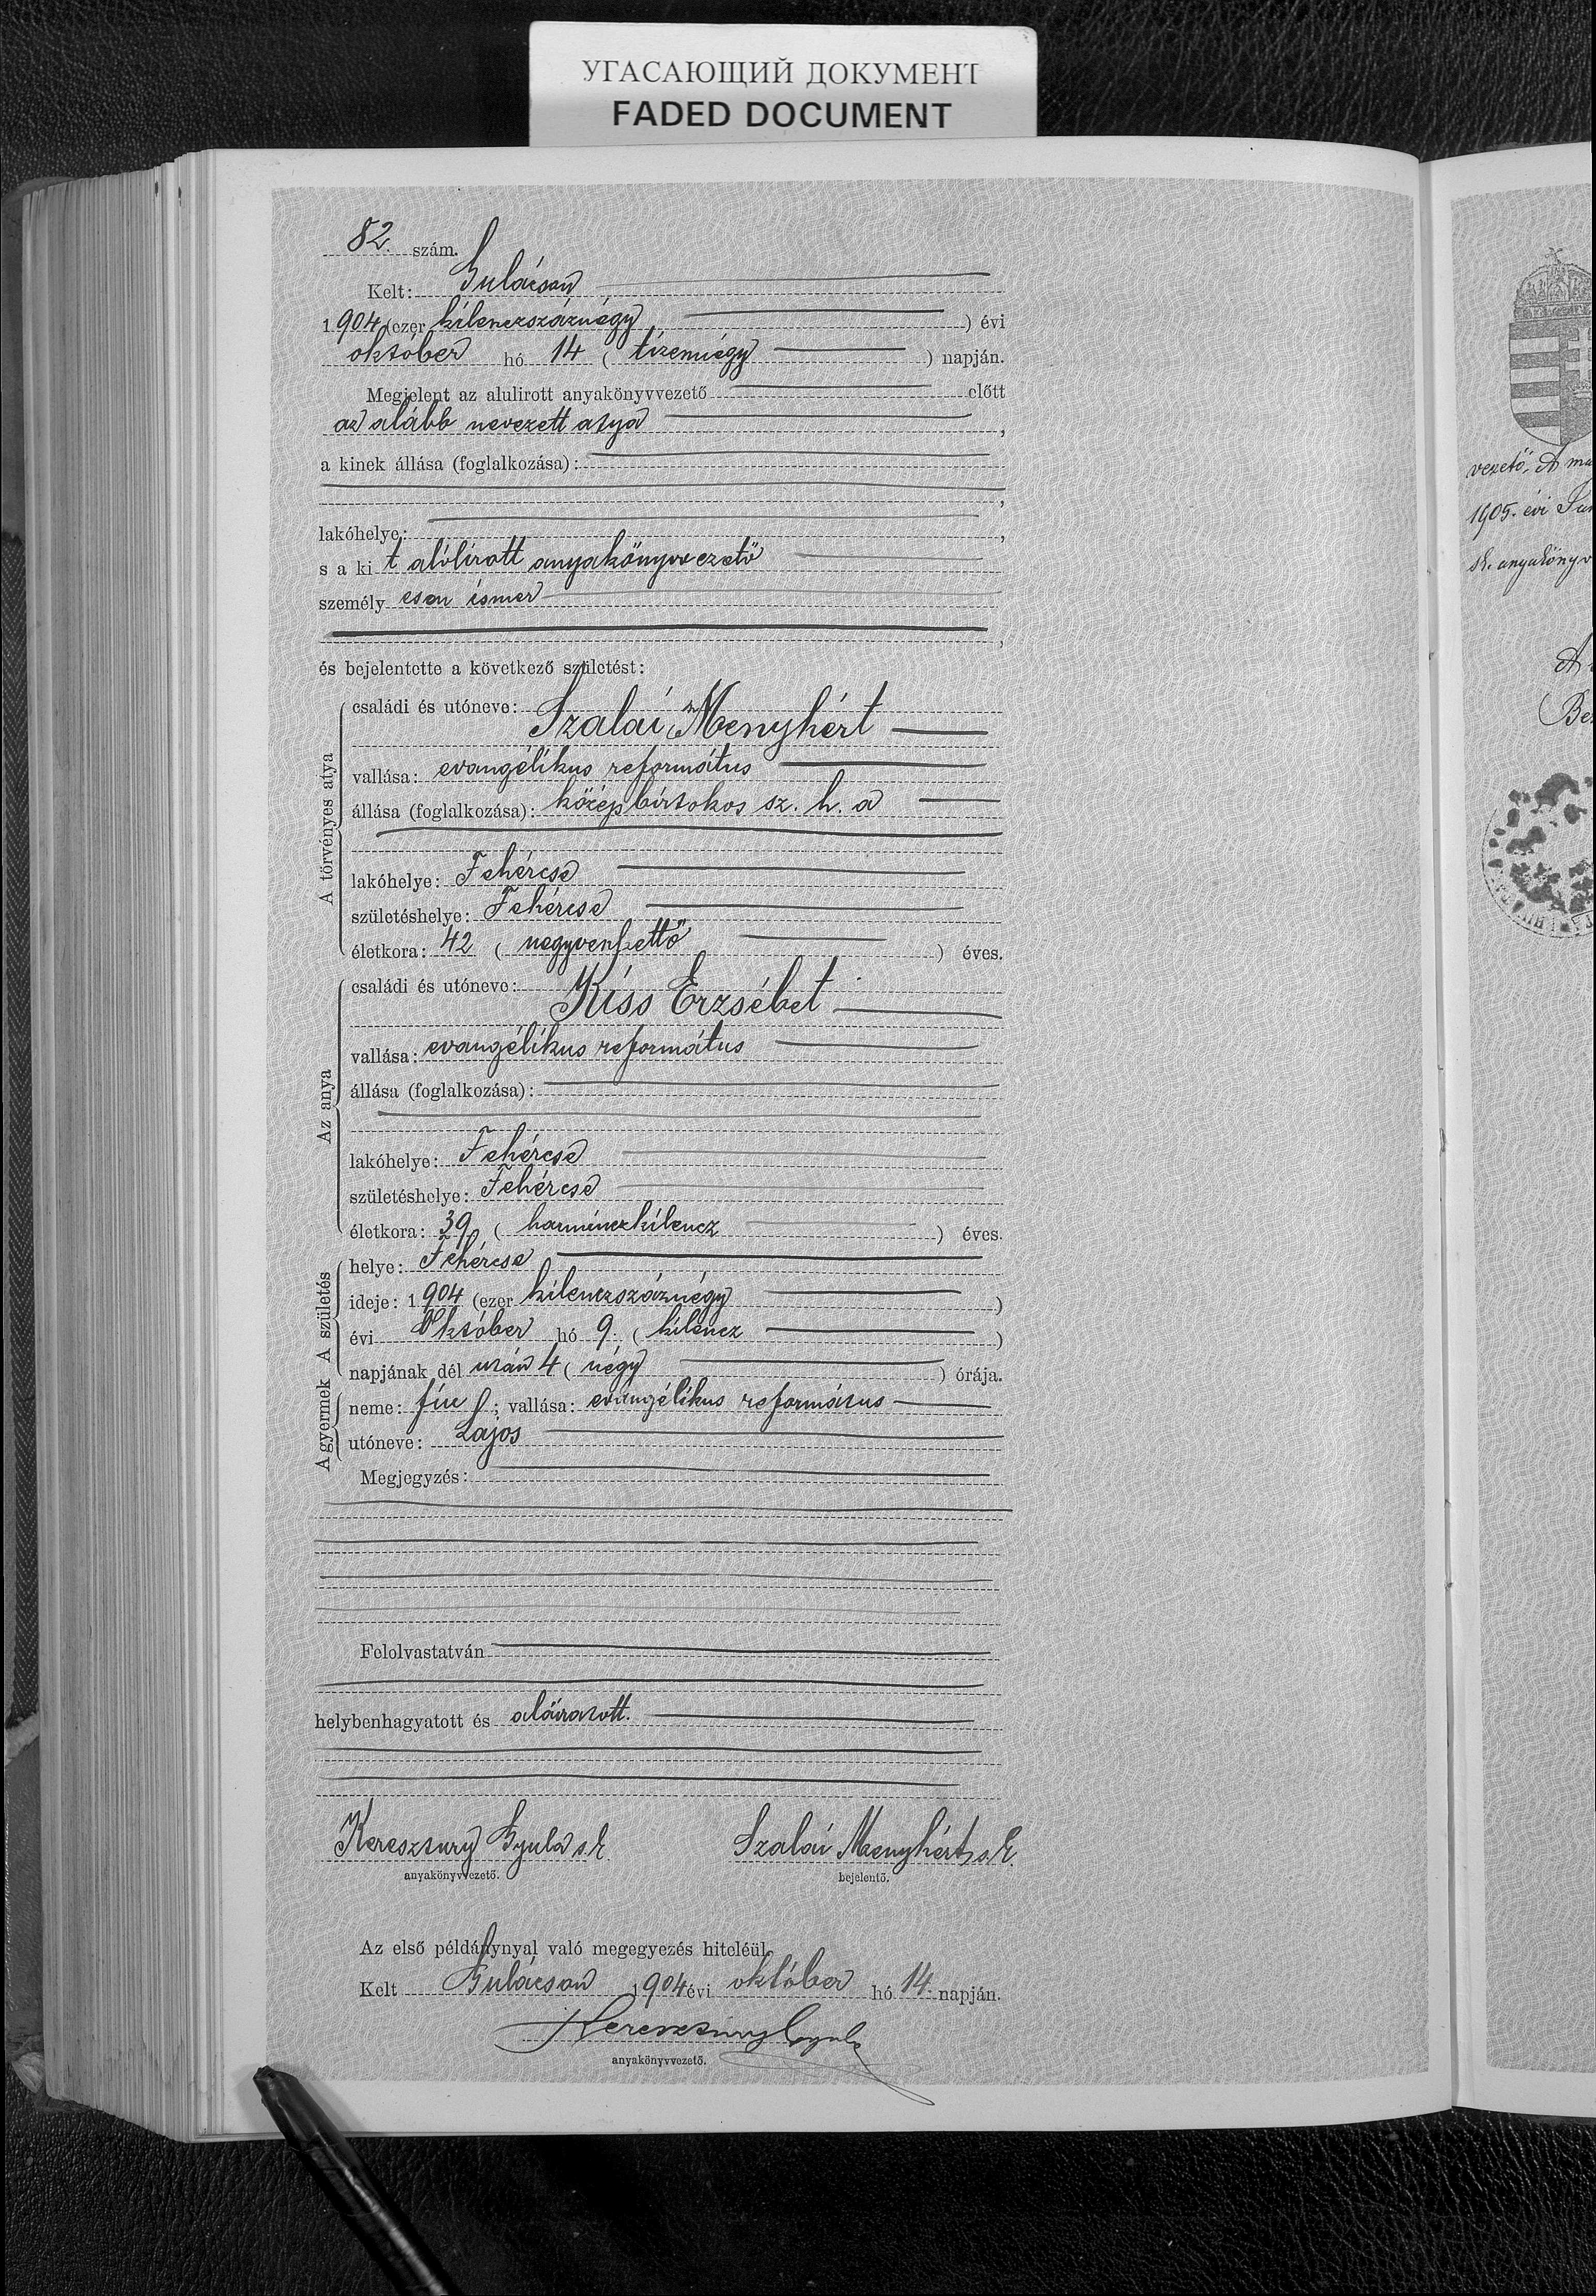 УГАСАЮЩИЙ ДОКУМЕНТ
FADED DOCUMENT
82. szám.
Kelt: Gulácson
1904 (ezer kilenczszáznégy) évi
október hó 14 (tizennégy) napján.
Megjelent az alulirott anyakönyvvezető előtt
az alább nevezett atya,
a kinek állása (foglalkozása):
,
lakóhelye: ,
s a kit alólirott anyakönyvvezető
személyesen ismer
,
és bejelentette a következő születést:
A törvényes atya
családi és utóneve: Szalai Menyhért
vallása: evangélikus református
állása (foglalkozása): középbirtokos sz. h. a
lakóhelye: Fehércse
születéshelye: Fehércse
életkora: 42 (negyvenkettő) éves.
Az anya
családi és utóneve: Kiss Erzsébet
vallása: evangélikus református
állása (foglalkozása):
lakóhelye: Fehércse
születéshelye: Fehércse
életkora: 39 (harminczkilencz) éves.
A születés
helye: Fehércse
ideje: 1904 (ezer kilenczszáznégy)
évi Október hó 9. (kilencz)
napjának dél után 4 (négy) órája.
A gyermek
neme: fiu; vallása: evangélikus református
utóneve: Lajos
Megjegyzés:
Felolvastatván
helybenhagyatott és aláiratott.
Keresztury Gyula s.k. Szalai Menyhért s.k.
anyakönyvvezető. bejelentő.
Az első példánynyal való megegyezés hiteléül.
Kelt Gulácson 1904 évi október hó 14. napján.
Keresztury Gyula
anyakönyvvezető.
vezető. A
1905. évi
sk. anyakönyv
A
Be